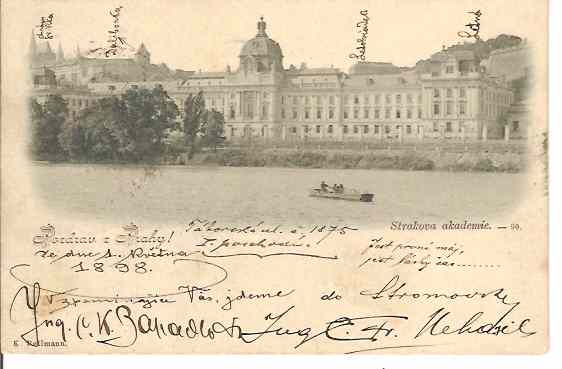 Daliborka
Letná
Strakova akademie. — 90.
Pozdrav z Prahy!
Táborská ul. č. 1875
I. poschodí.
ze dne 1. května
1898.
Jest první máj,
jest lásky čas........
Vzpomínajíce Vás, jdeme do Stromovky
Ing. C. K.
Ing. C. Fr.
K. Bellmann.